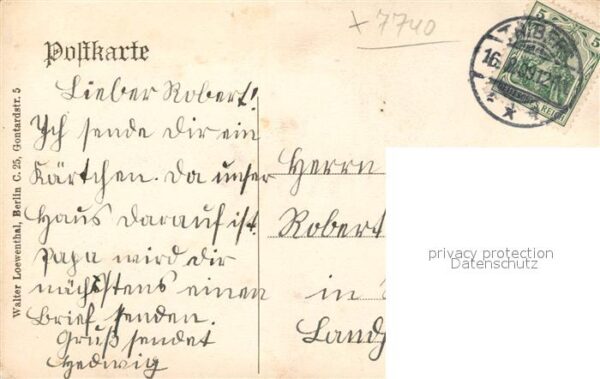 x 7740
5 5
16. 12
DEUTSCHES REICH
Postkarte
Lieber Robert!
Ich sende dir ein
Kärtchen. Da unser
Haus darauf ist.
Papa wird dir
nächstens einen
Brief senden.
Gruß sendet
Hedwig
Walter Loewenthal, Berlin C. 25, Gontardstr. 5
Herrn
Robert
in
Land
privacy protection
Datenschutz